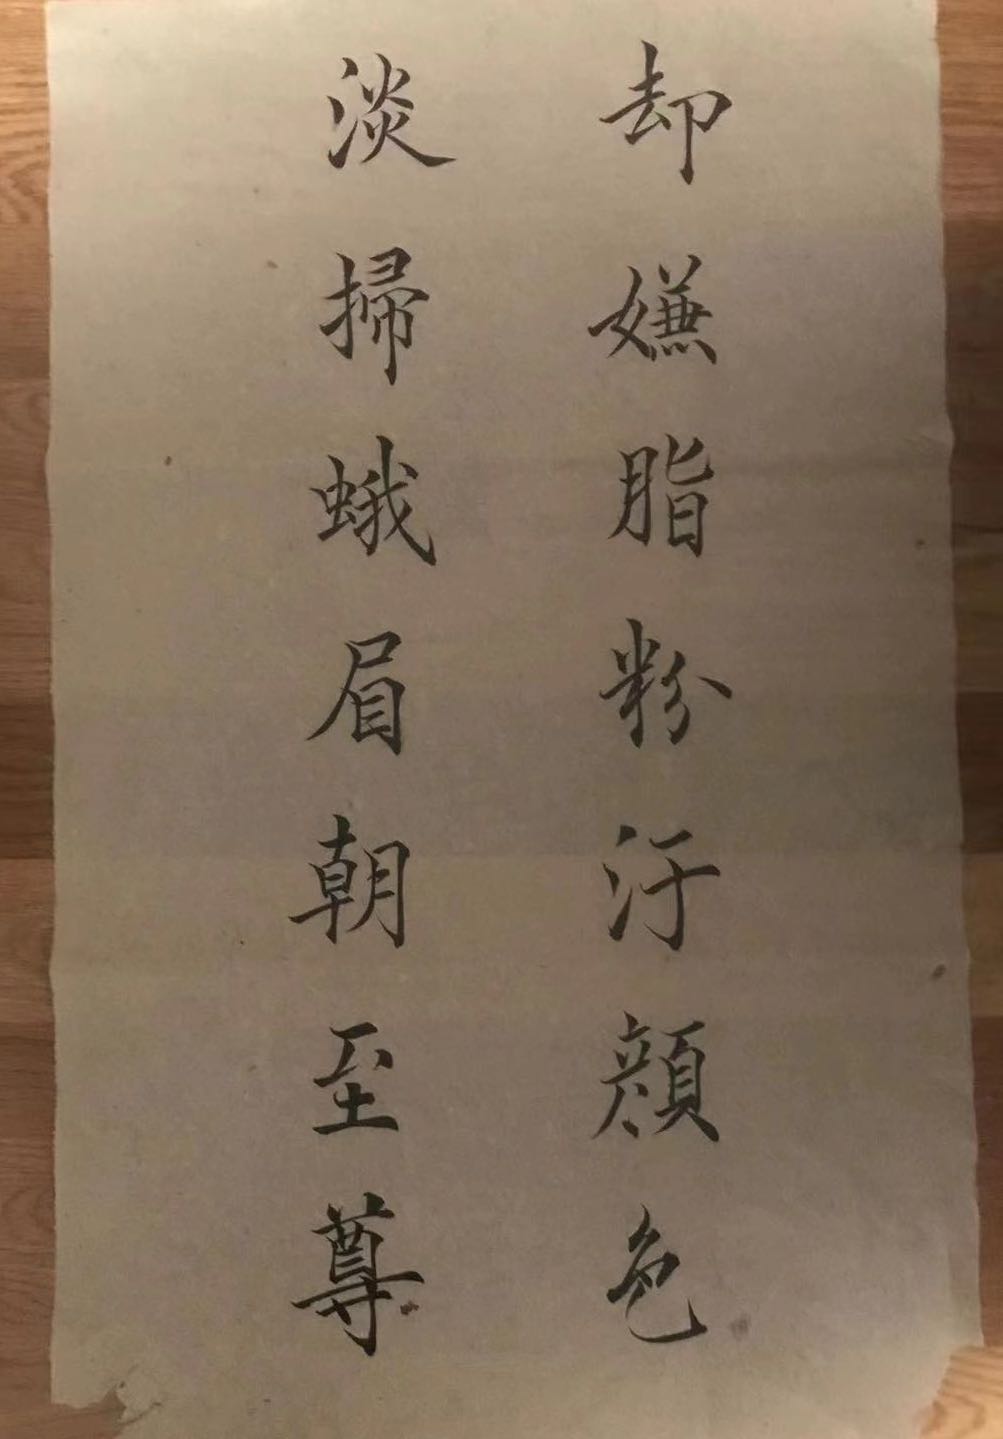 却嫌脂粉汙顔色
淡掃蛾眉朝至尊